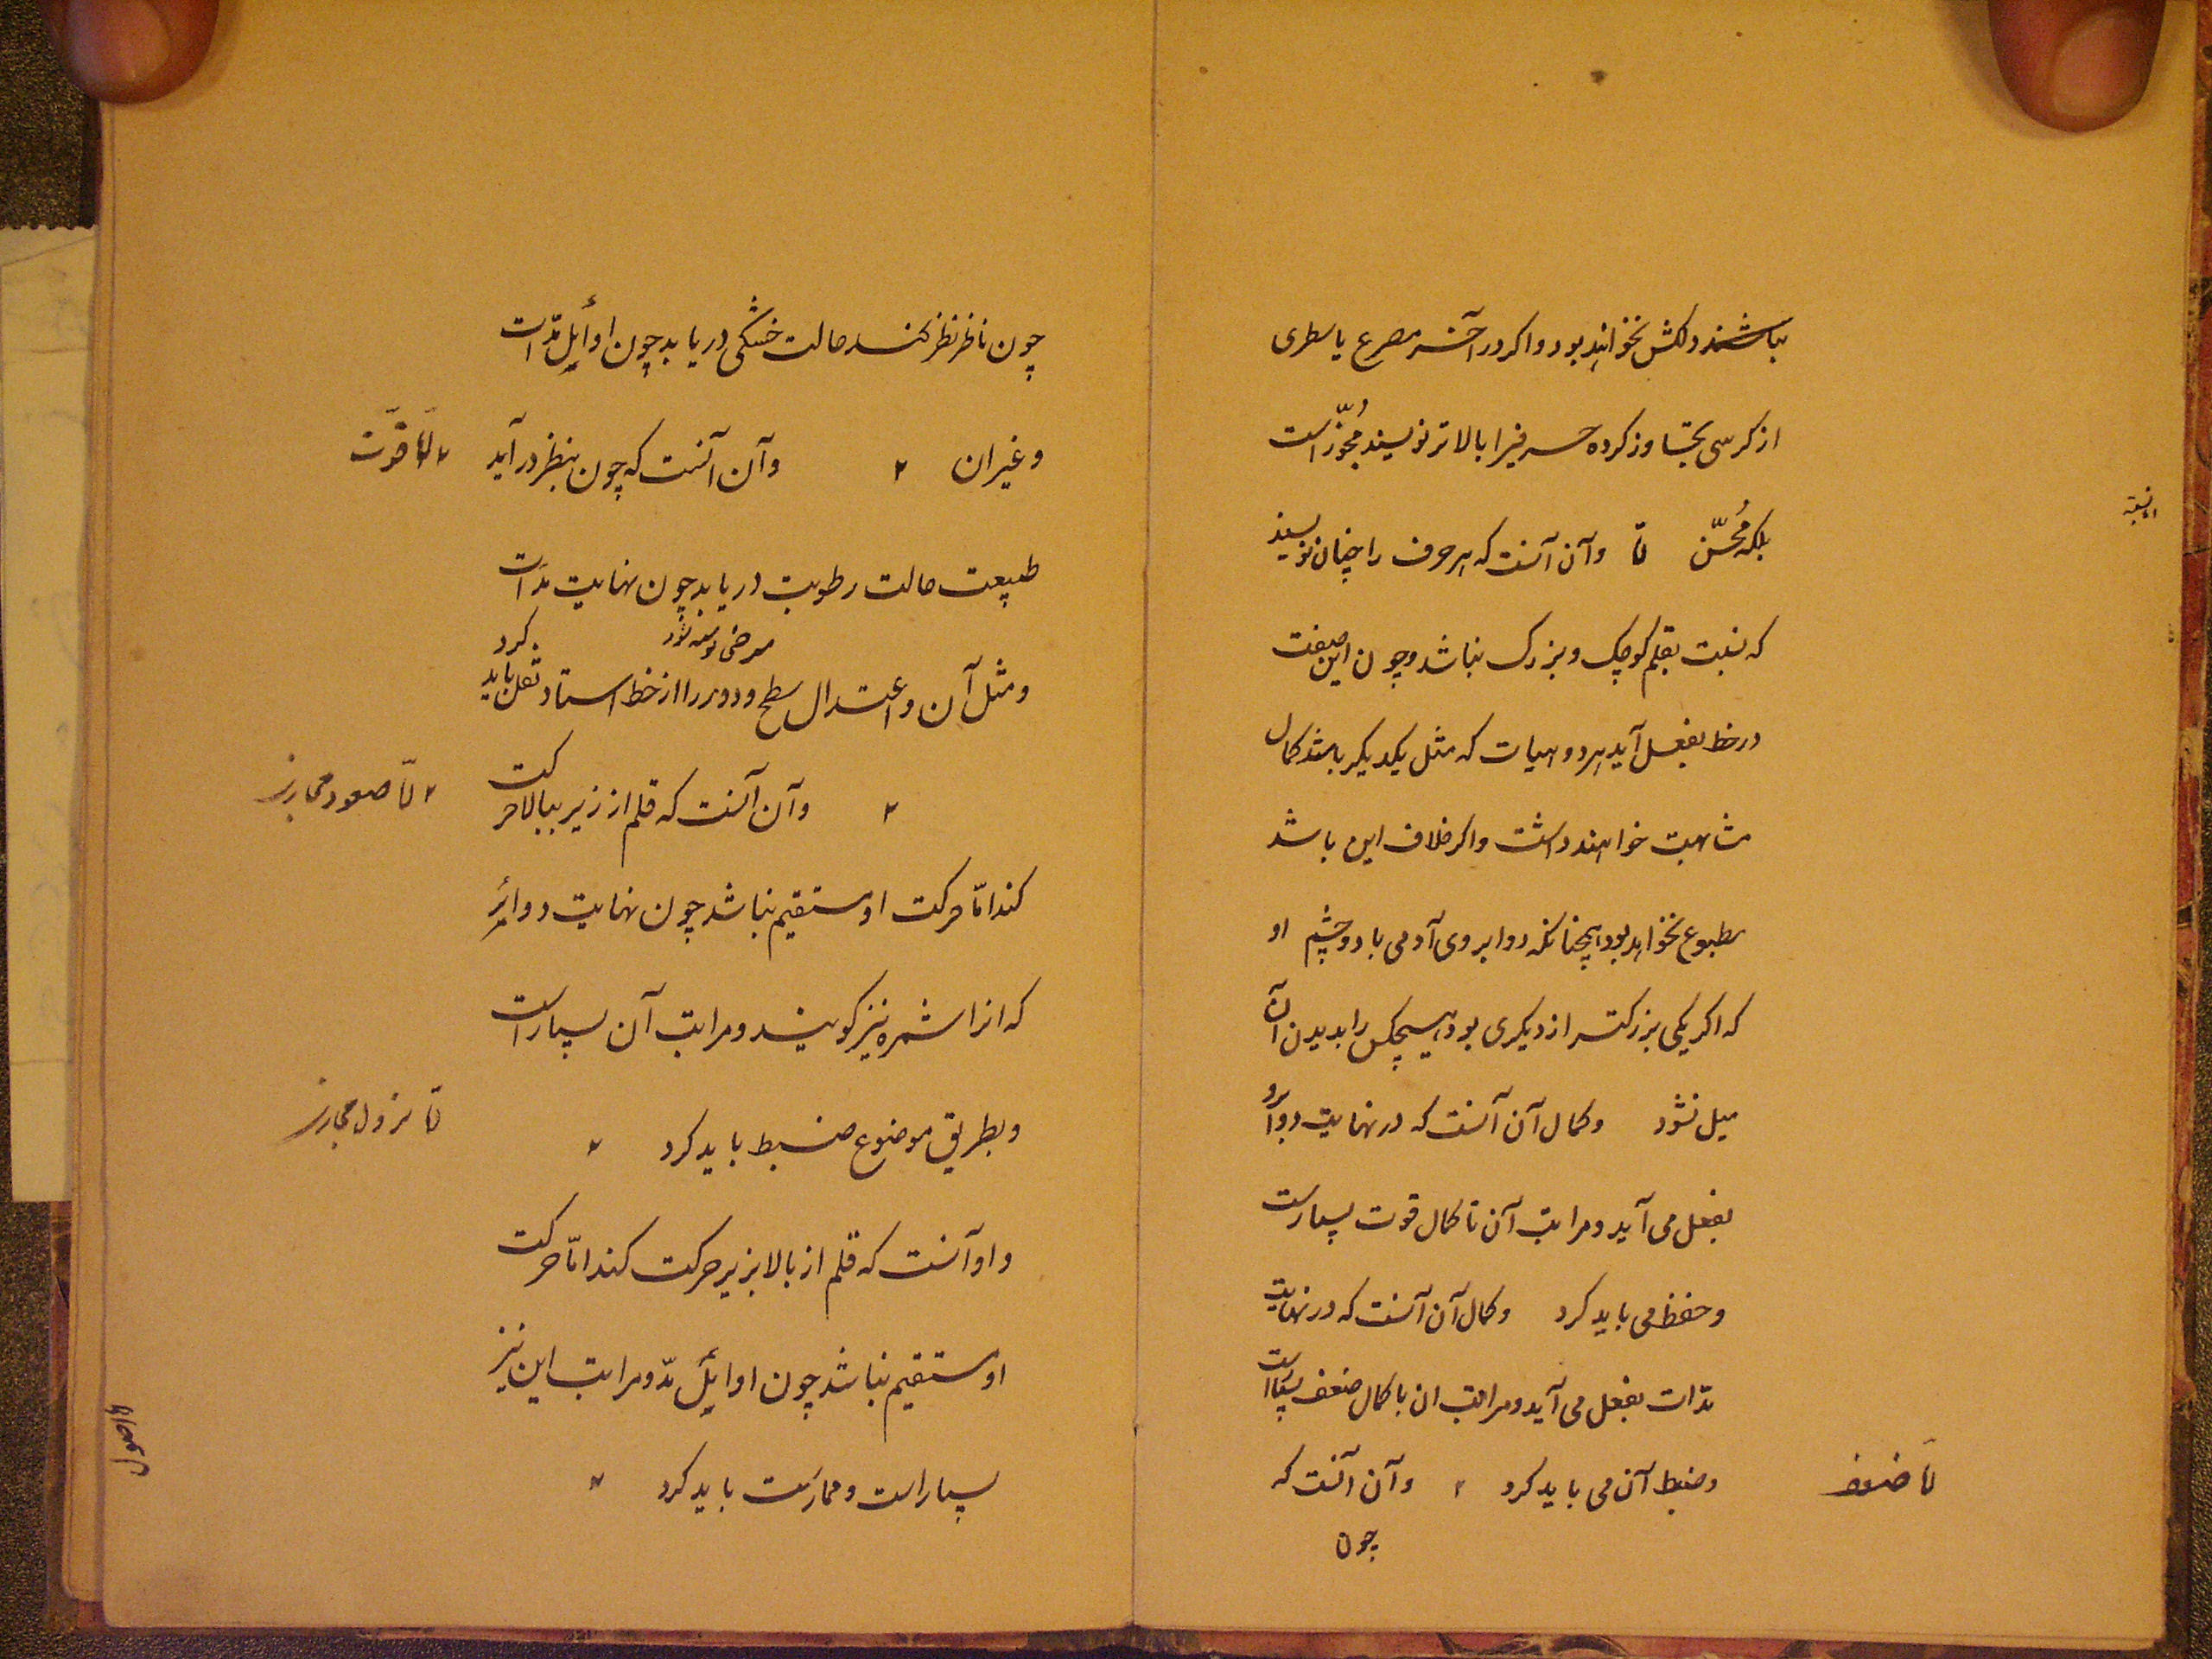 نباشند دلکش نخواهد بود و اکر در آخر مصرع یا سطری
از کرسی تجاوز کرده حرفیرا بالاتر نویسند مجوّز است
بلکه مُحسّن امّا وآن آنست که هر حرف را چنان نویسند
که نسبت بقلم کوچک و بزرک نباشد و چون این صفت
در خط بفعل آید هر دو هیات که مثل یکدیکر باشند کمال
مشابهت خواهند داشت و اکر خلاف این باشد
مطبوع نخواهد بود همچنانکه دو ابروی آدمی با دو چشم او
که اکر یکی بزرکتر از دیکری بود هیچکس را بدیدن آن
میل نشود وکمال آن آنست که در نهایت دوایر
بفعل می آید و مراتب آن تا کمال قوت بسیارست
و حفظ می باید کرد وکمال آن آنست که در نهایت
مدّات بفعل می آید و مراتب ان با کمال ضعف بسیار است
امّا ضعف وضبط آن می باید کرد وآن آنست که
چون
چون ناظر نظر کند حالت خشکی دریابد چون اوایل مدّات
امّا قوّت وغیران وآن آنست که چون بنظر در آید
طبیعت حالت رطوبت دریابد چون نهایت مدّات
ومثل آن و اعتدال سطح و دور را از خط استاد نقل باید کرد
امّا صعود مجازی وآن آنست که قلم از زیر ببالا حرکت
کند امّا حرکت او مستقیم نباشد چون نهایت دوایر
که انرا شمره نیز کویند و مراتب آن بسیار است
امّا نزول مجازی وبطریق موضوع ضبط باید کرد
واو آنست که قلم از بالا بزیر حرکت کند امّا حرکت
او مستقیم نباشد چون اوایل مدّ و مراتب این نیز
بسیار است و ممارست باید کرد